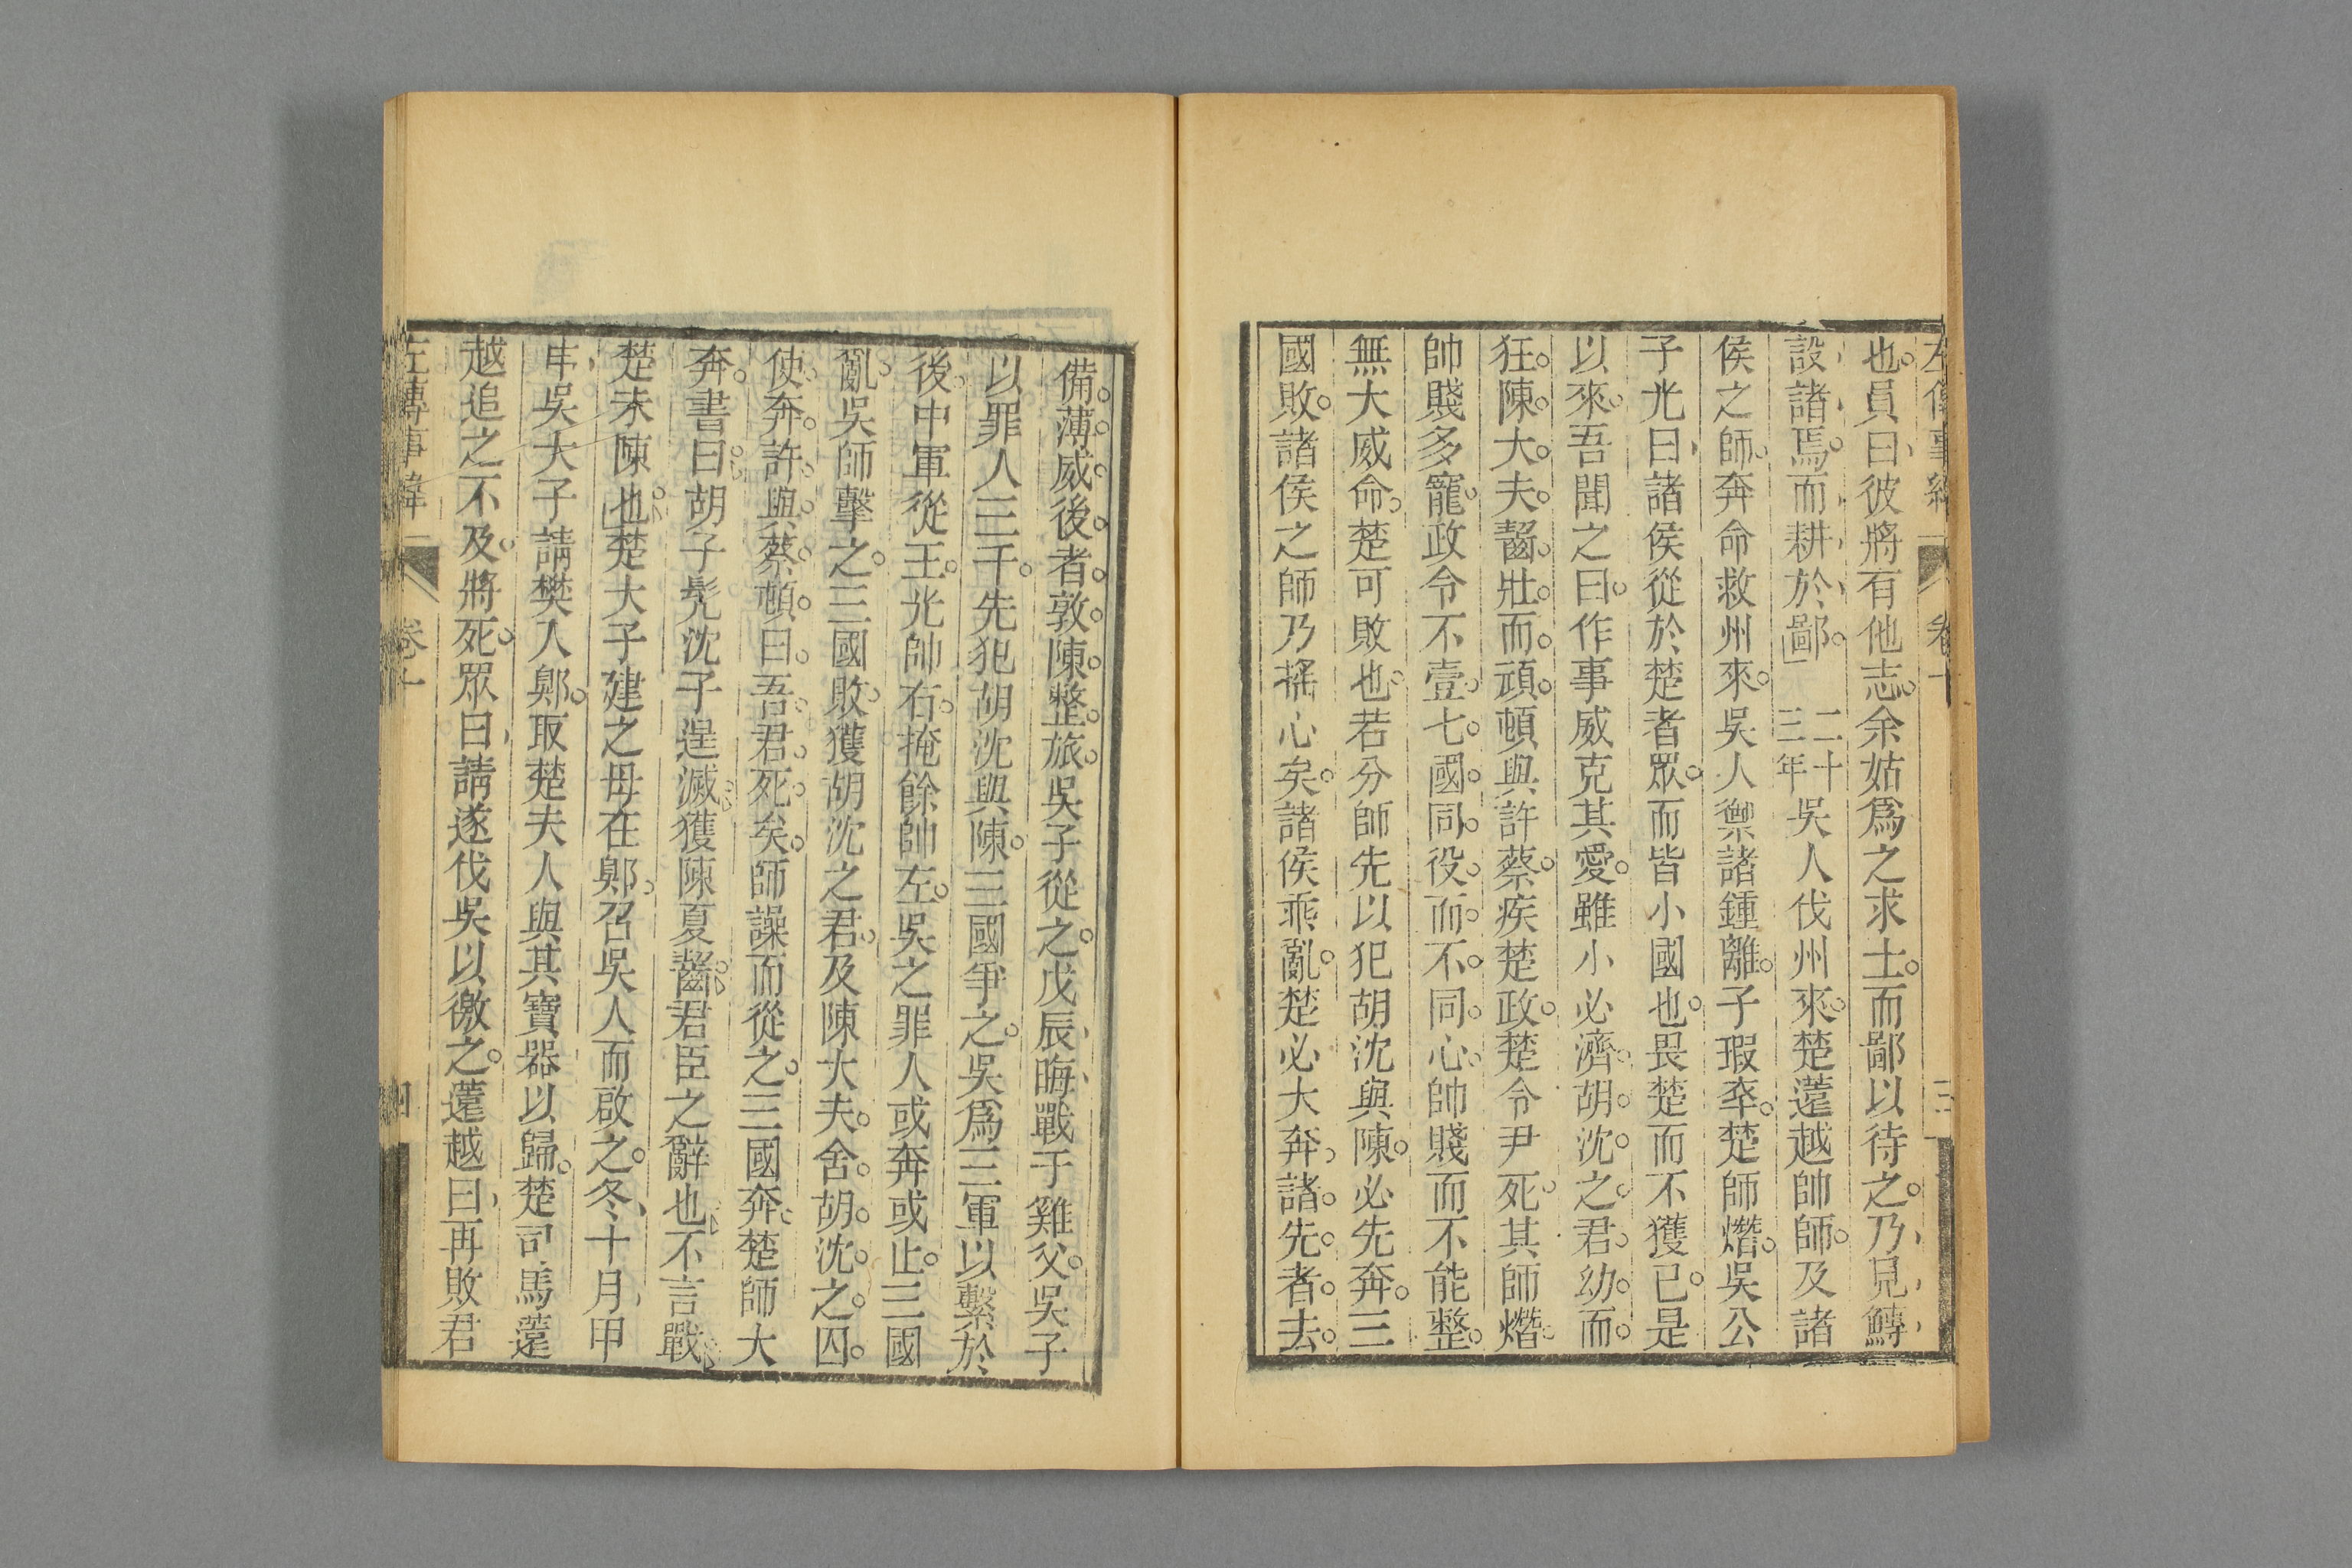 左傳事緯 卷十 三
也員曰彼將有他志余姑爲之求士而鄙以待之乃見鱄
設諸焉而耕於鄙二十三年吳人伐州來楚薳越帥師及諸
侯之師奔命救州來吳人禦諸鍾離子瑕卒楚師熸吳公
子光曰諸侯從於楚者眾而皆小國也畏楚而不獲已是
以來吾聞之曰作事威克其愛雖小必濟胡沈之君幼而
狂陳大夫齧壯而頑頓與許蔡疾楚政楚令尹死其師熸
帥賤多寵政令不壹七國同役而不同心帥賤而不能整
無大威命楚可敗也若分師先以犯胡沈與陳必先奔三
國敗諸侯之師乃搖心矣諸侯乖亂楚必大奔諸先者去
備薄威後者敦陳整旅吳子從之戊辰晦戰于雞父吳子
以罪人三千先犯胡沈與陳三國爭之吳爲三軍以繫於
後中軍從王光帥右掩餘帥左吳之罪人或奔或止三國
亂吳師擊之三國敗獲胡沈之君及陳大夫舍胡沈之囚
使奔許與蔡頓曰吾君死矣師譟而從之三國奔楚師大
奔書曰胡子髡沈子逞滅獲陳夏齧君臣之辭也不言戰
楚未陳也楚大子建之母在郹召吳人而啟之冬十月甲
申吳大子請樊入郹取楚夫人與其寶器以歸楚司馬薳
越追之不及將死眾曰請遂伐吳以徼之薳越曰再敗君
左傳事緯 卷十 四